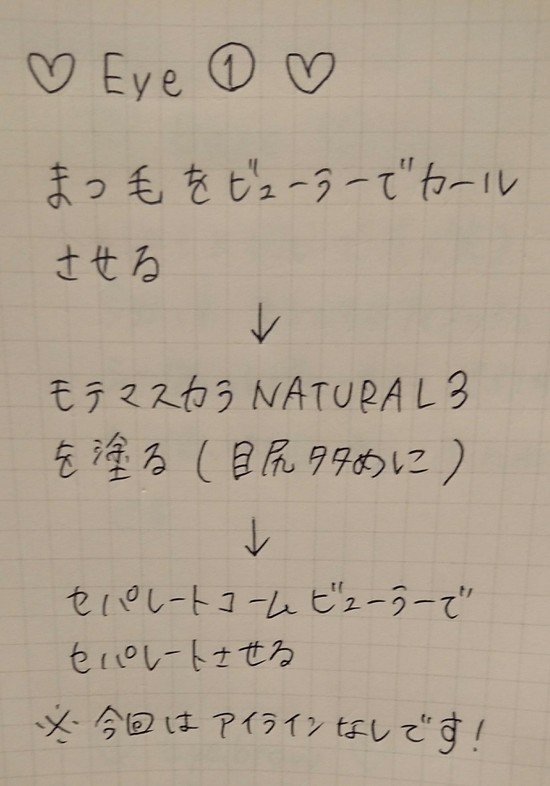 ♡ Eye ① ♡
まつ毛をビューラーでカール
させる
↓
モテマスカラ NATURAL 3
を塗る(目尻多めに)
↓
セパレートコームビューラーで
セパレートさせる
※今回はアイラインなしです!